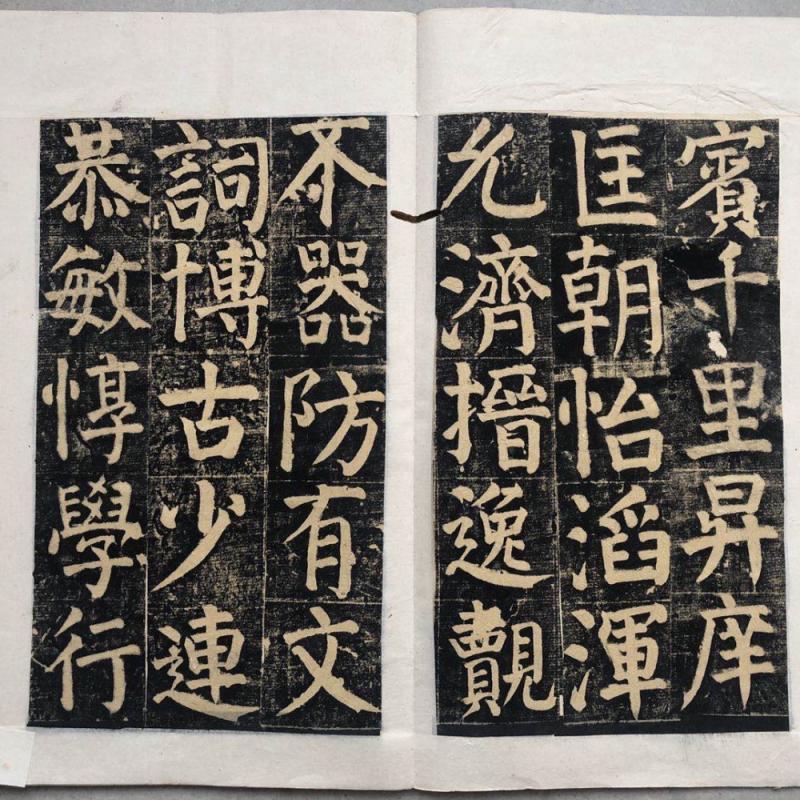 賓千里昇庠
匡朝怡滔渾
允濟搢逸覿
不器防有文
詞博古少連
恭敏惇學行